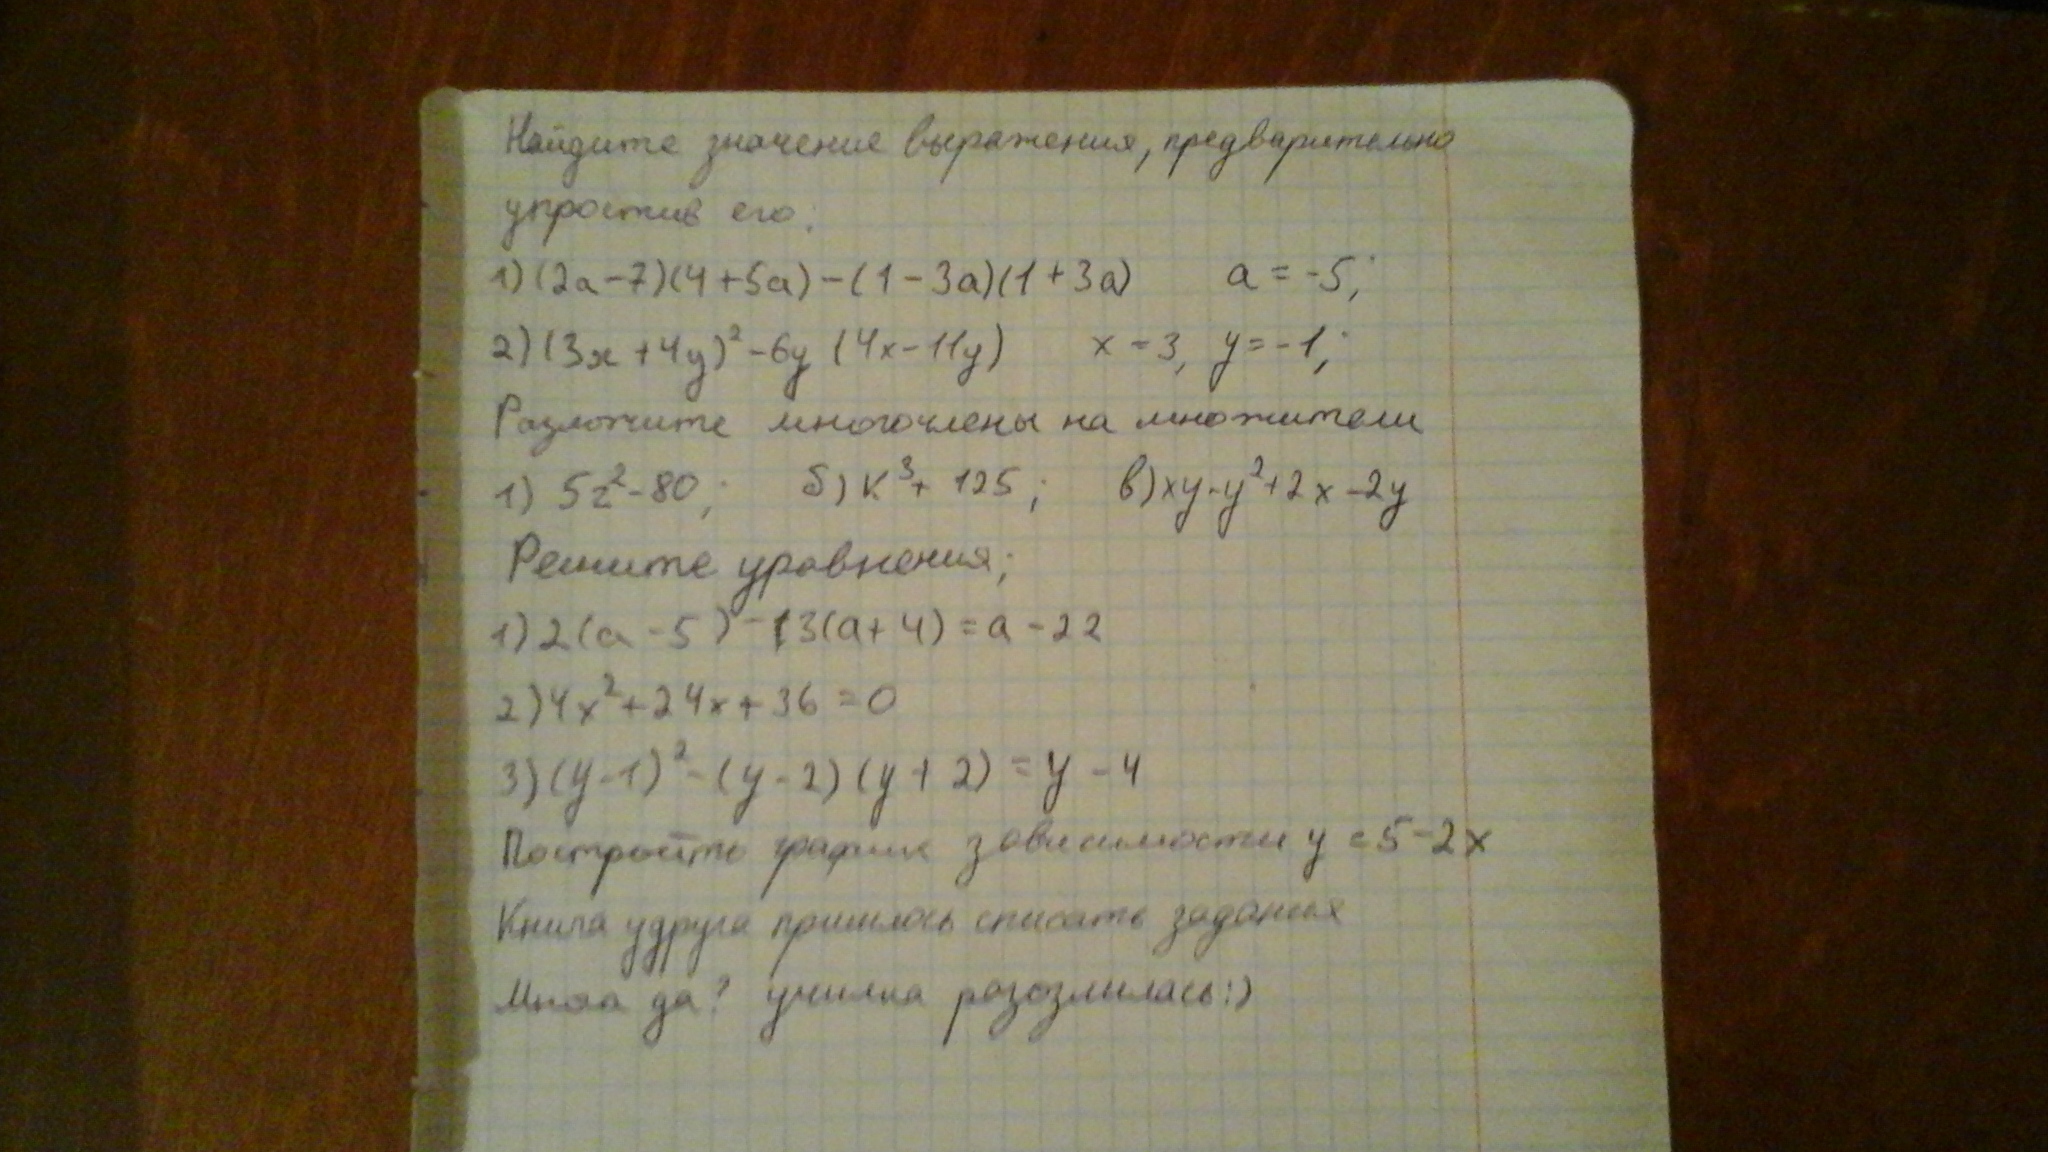 Найдите значение выражения, предварительно
упростив его:
1) (2a-7)(4+5a)-(1-3a)(1+3a) a=-5;
2) (3x+4y)²-6y(4x-11y) x=3, y=-1;
Разложите многочлены на множители
1) 5z²-80; б) к³+125; в) xy-y²+2x-2y
Решите уравнения;
1) 2(a-5)-13(a+4)=a-22
2) 4x²+24x+36=0
3) (y-1)²-(y-2)(y+2)=y-4
Постройте график зависимости y=5-2x
Книга у друга пришлось списать задания
да? училка разозлилась:)